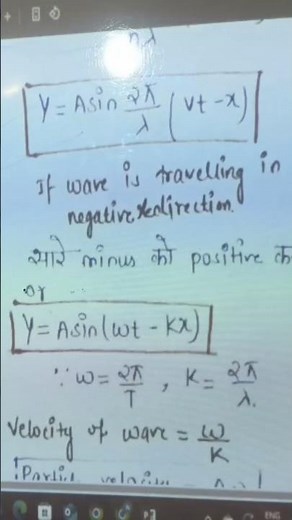 nλ
Y = A sin 2π/λ (vt - x)
If wave is travelling in
negative x direction.
सारे minus को positive क
or
Y = A sin (ωt - kx)
∵ ω = 2π/T , K = 2π/λ.
Velocity of wave = ω/K
ENG